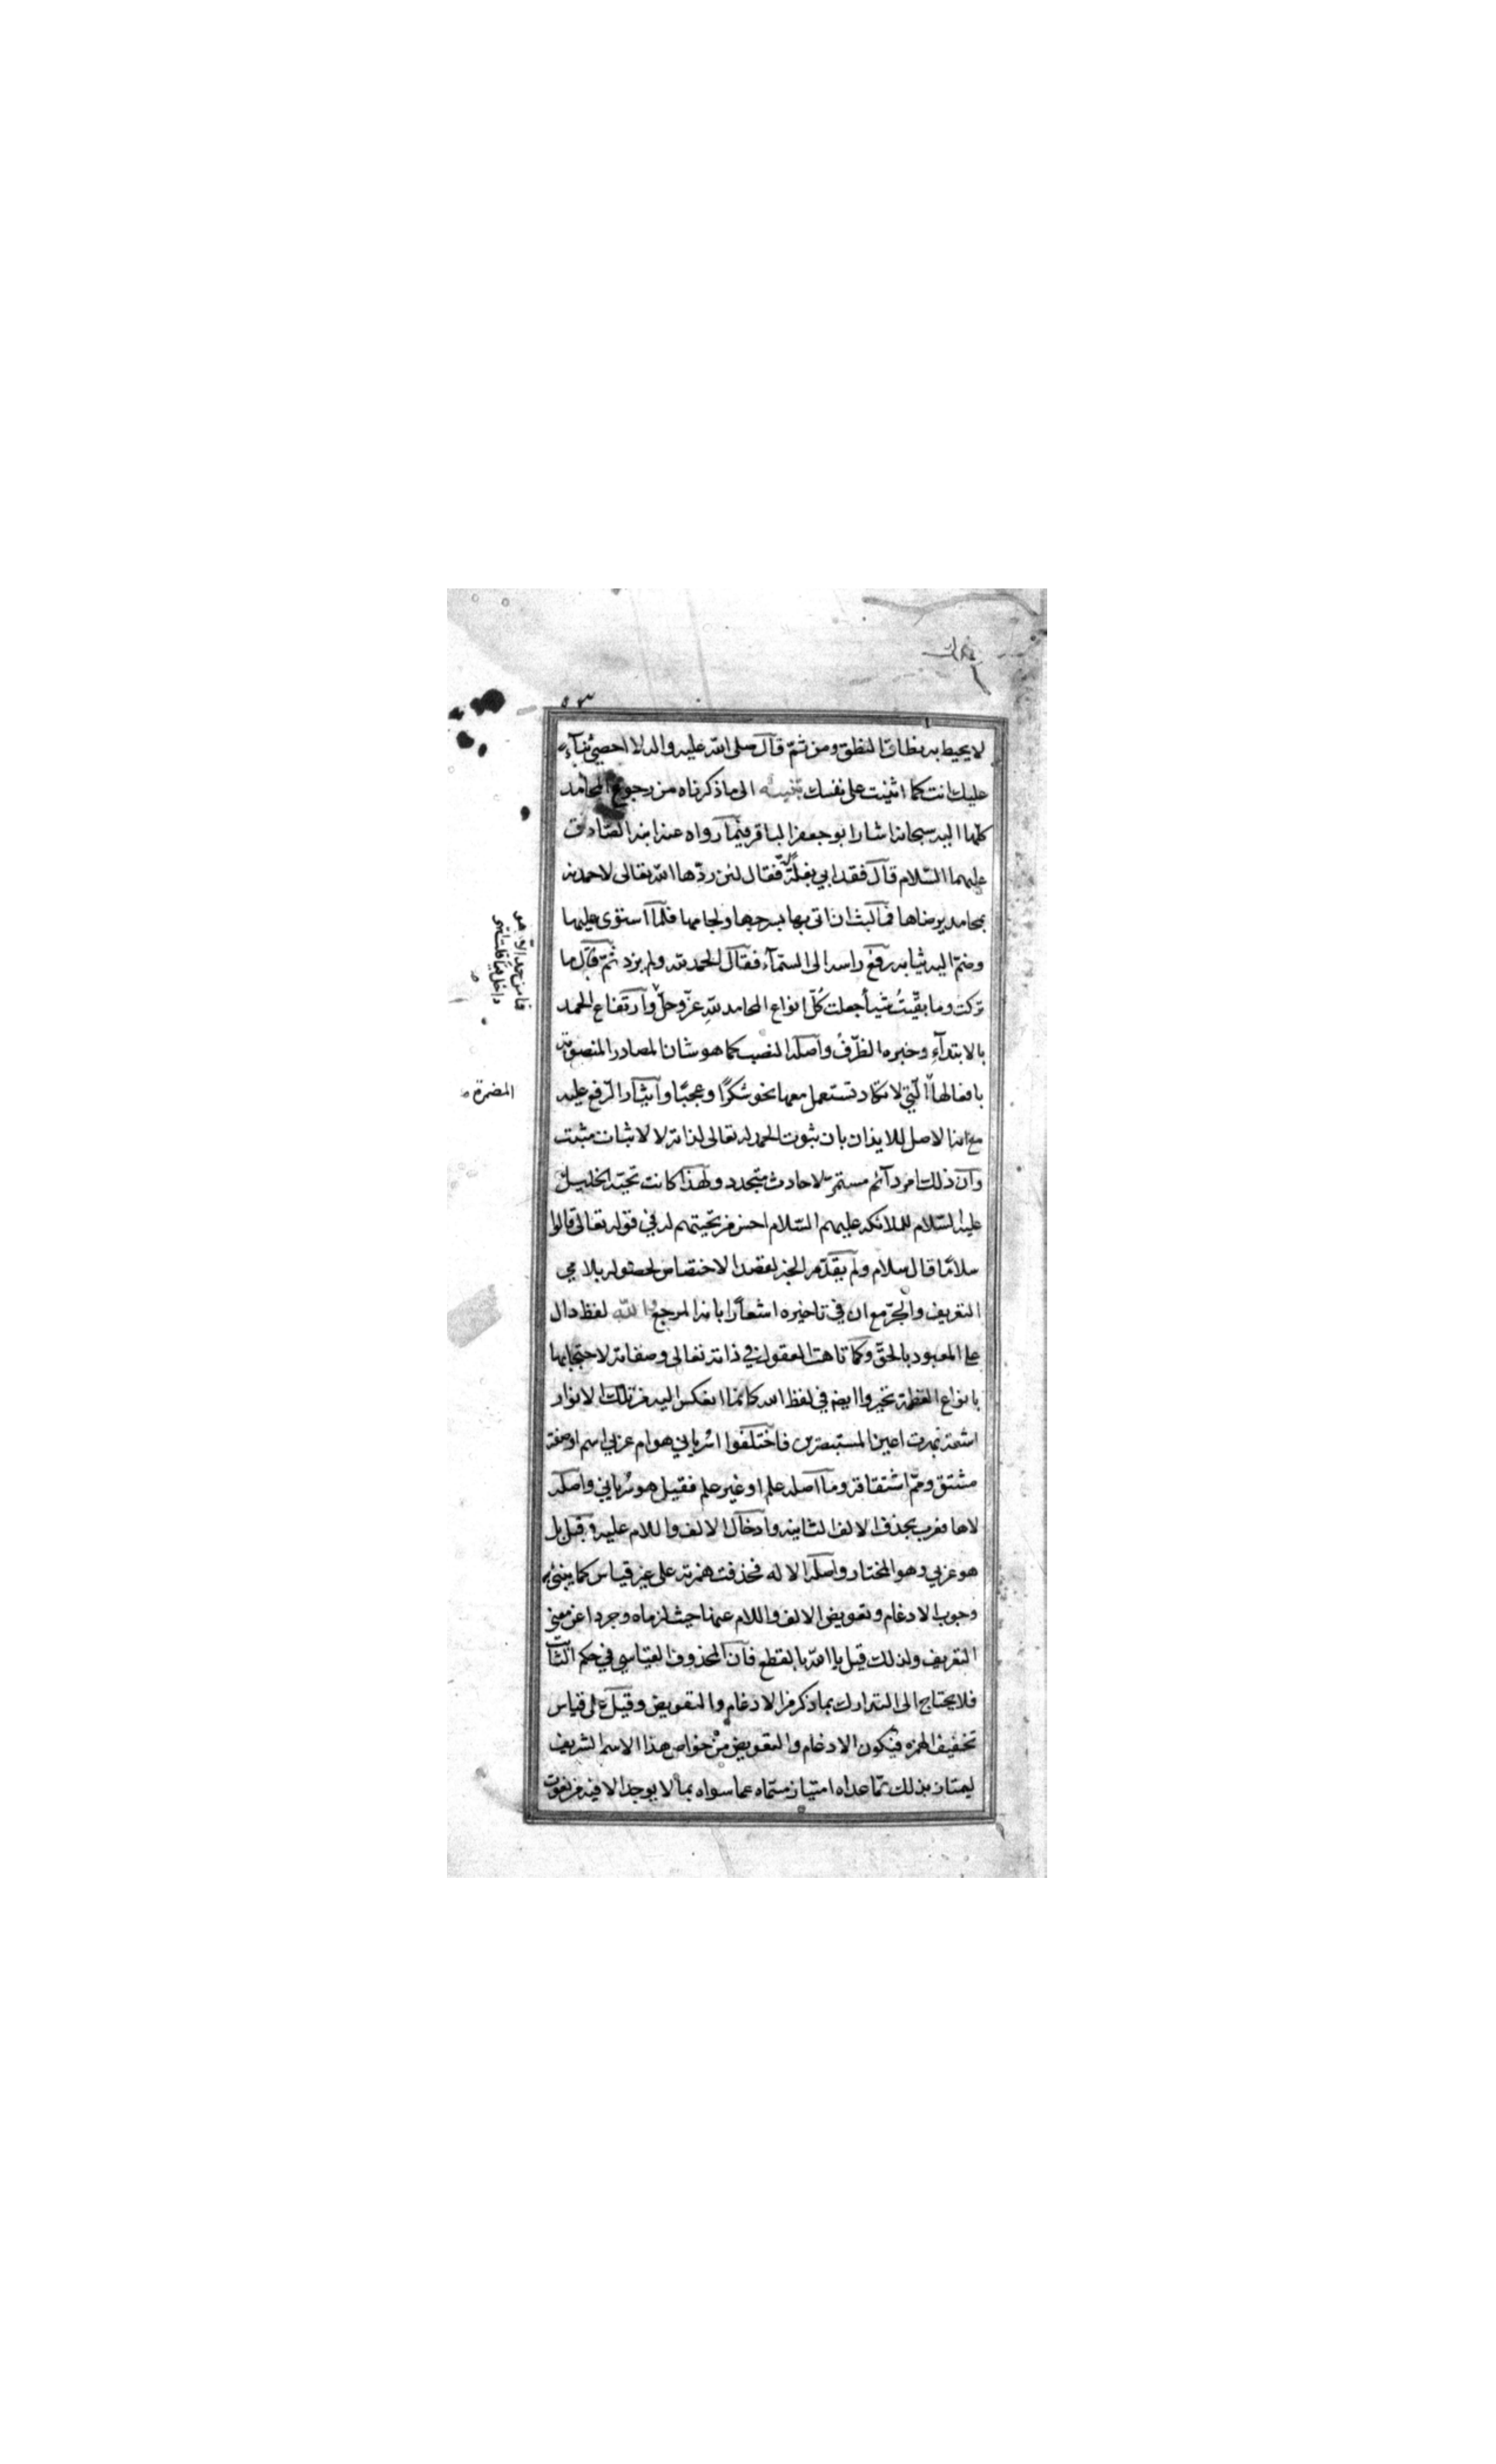 ٥٣
لا يحيط به نطاق النطق ومن ثمّ قال صلى الله عليه واله لا احصي ثناء
عليك انت كما اثنيت على نفسك تنبيه الى ما ذكرناه من رجوع المحامد
كلها اليه سبحانه اشار ابو جعفر الباقر فيما رواه عنه ابنه الصادق
عليهما السّلام قال فقد ابي بغلة له فقال لئن ردّها الله تعالى لاحمدنه
بمحامد يرضاها فما لبث ان اتي بها بسرجها ولجامها فلمّا استوى عليها
وضمّ اليه ثيابه رفع راسه الى السّمآء فقال الحمد لله ولم يزد ثمّ قال ما
تركت وما بقّيتُ شيأ جعلت كُلّ انواع المحامد للهِ عزّ وجلّ وارتفاع الحمد
بالابتدآءِ وخبره الظرفُ واصله النصب كما هو شان المصادر المنصوبة
بافعالها الّتي لا تكاد تستعمل معها نحو شكرًا وعجبًا وايثار الرّفع عليه
مع انه الاصل للايذان بان ثبوت الحمد له تعالى لذاته لا لاثبات مثبت
وان ذلك امر دآئم مستمر لا حادث متجدد ولهذا كانت تحيّة الخليل
عليه السّلام للملائكة عليهم السّلام احسن من تحيتهم له في قوله تعالى قالوا
سلامًا قال سلام ولم يقدّم الخبر لقصد الاختصاص لحصوله بلامي
التعريف والجرّ مع ان في تاخيره اشعارًا بانه المرجع والله لفظ دال
على المعبود بالحقّ وكما تاهت العقول في ذاته تعالى وصفاته لاحتجابها
بانواع العظمة تحيروا ايضا في لفظ الله كانما انعكس اليه من تلك الانوار
اشعة بهرت اعين المستبصرين فاختلفوا اسرياني هو ام عربي اسم او صفة
مشتق وممّ اشتقاقه وما اصله علم او غير علم فقيل هو سُرياني واصله
لاها معرب بحذف الالف الثانية وادخال الالف واللام عليه وقيل بل
هو عربي وهو المختار واصله الاله فحذفت همزته على غير قياس كما ينبئ به
وجوب الادغام وتعويض الالف واللام عنها حيث لزماه وجردا عن معنى
التعريف ولذلك قيل يا الله بالقطع فان المحذوف القياسي في حكم الثابت
فلا يحتاج الى التدارك بما ذكر من الادغام والتعويض وقيل على قياس
تخفيف الهمزه فيكون الادغام والتعويض من خواص هذا الاسم الشريف
ليمتاز بذلك عمّا عداه امتياز مسمّاه عما سواه بما لا يوجد الا فيه من نعوت
المضمرة